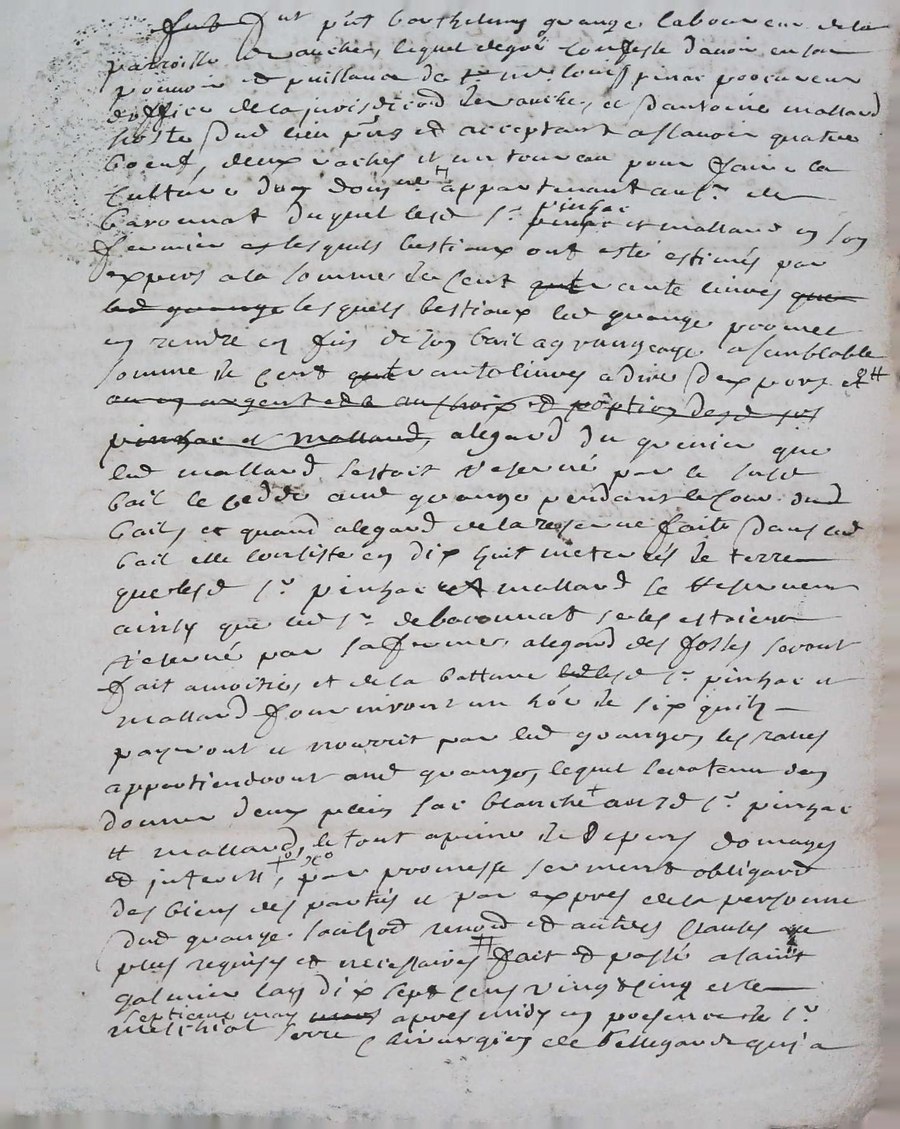 fut p'nt barthelemy grange laboureur de la
parroisse de lequel de gré confesse davoir en son
pouvoir et puissance de me louis pinhac procureur
doffice de la jurisdiction de et dantoine malland
hoste dud lieu p'ns et acceptant assavoir quatre
boeufs, deux vaches et un taureau pour faire la
culture dun domne appartenant au sr de
baronnat duquel lesd sr pinhac et malland en son
fermier et lesquels bestiaux ont esté estimés par
expers a la somme de cent livres que
led grange lesquels bestiaux led grange promet
en rendre en fin de son bail a grangeage a semblable
somme de cent livres a dire dexpers et
ou en argent au choix et option desd srs
pinhac et malland, alegard du grenier que
led malland sestoit reservé par le susd
bail le cedde aud grange pendant le cour dud
bail, et quand alegard de la reserve faite dans led
bail elle consiste en dix huit meterés de terre
que lesd sr pinhac et malland se reservent
ainsy que led sr de baronnat se les estoient
reservé par sa ferme, alegard des fosses seront
fait a moities, et de la batture lesd sr pinhac et
malland fourniront un de six quils
payront et nourrit par led grange, les raves
appartiendront aud grange, lequel sera tenu den
donner deux plein sac blanche ausd sr pinhac
et malland, le tout a peine de depens domages
et interests, par promesse serment obligaon
des biens des parties et par expres de la personne
dud grange. renond et autres clauses
plus requises et necessaires fait et passé a saint
galmier lan dix sept cens vingt cinq et le
septieme may apres midy en presence de sr
melchiol serre chirurgien de bellegarde qui a